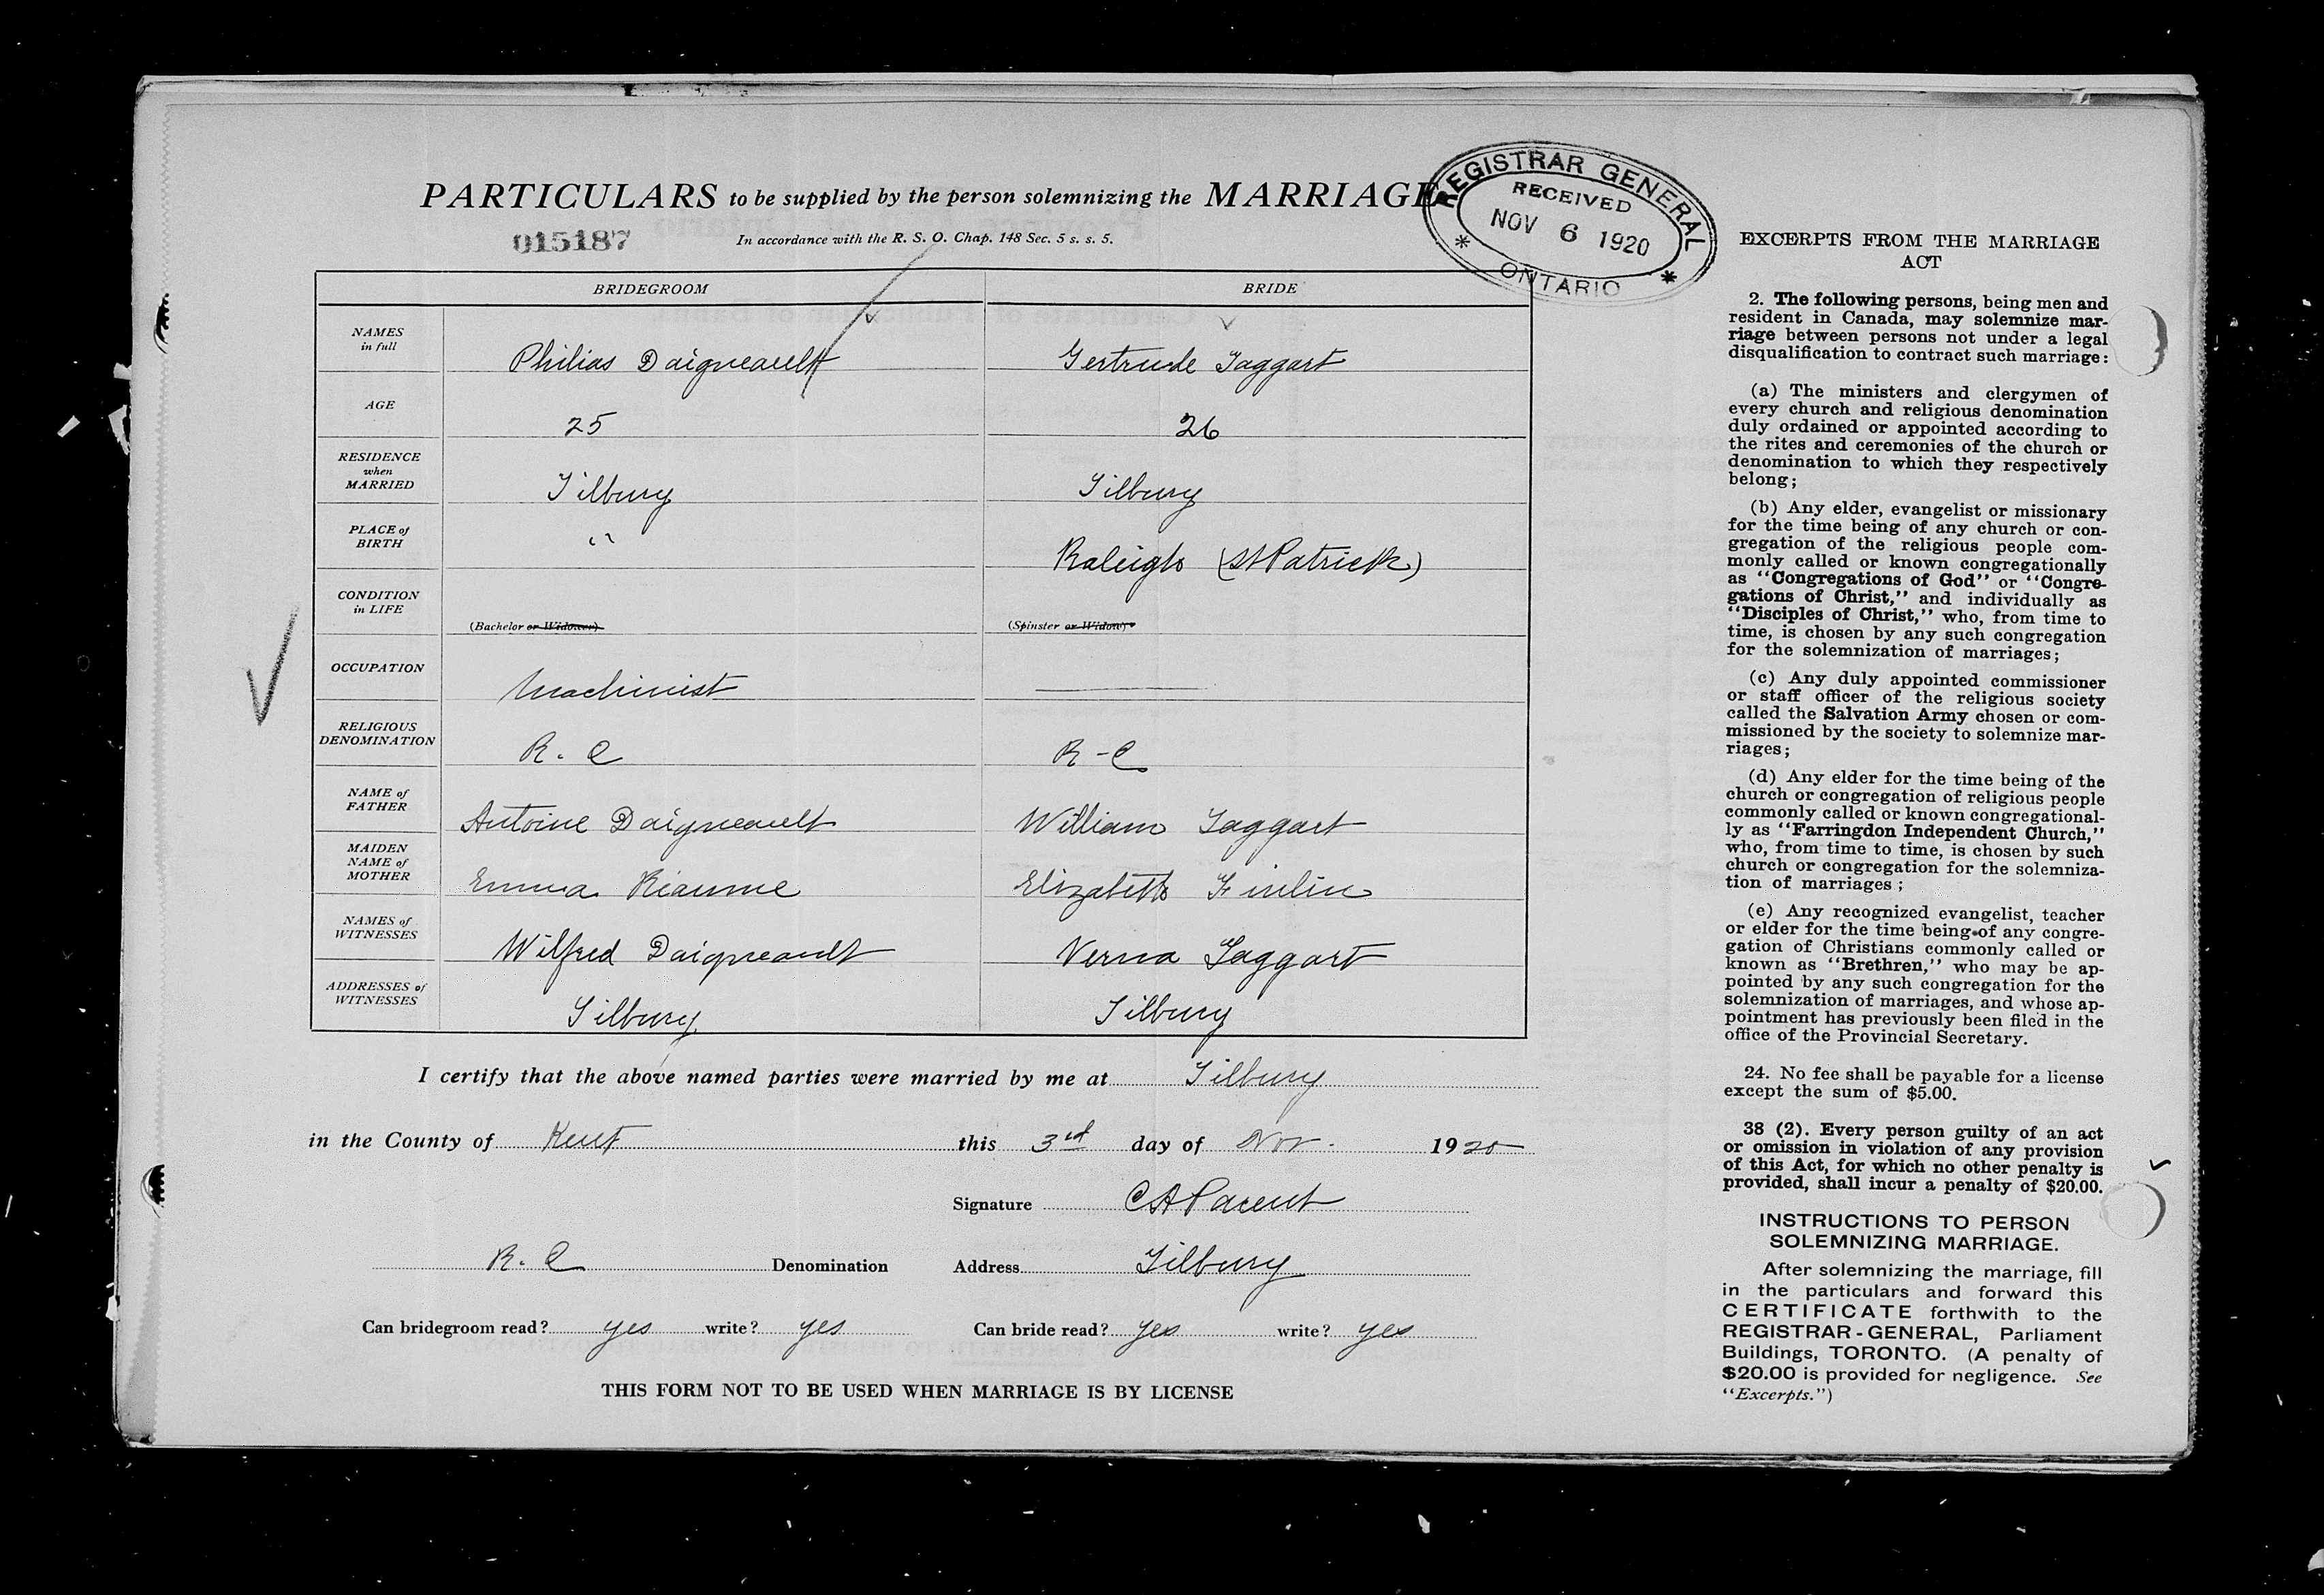 PARTICULARS to be supplied by the person solemnizing the MARRIAGE
015187
In accordance with the R. S. O. Chap. 148 Sec. 5 s. s. 5.
REGISTRAR GENERAL
RECEIVED
NOV 6 1920
* ONTARIO *
BRIDEGROOM BRIDE
NAMES in full Philias Daigneault Gertrude Taggart
AGE 25 26
RESIDENCE when MARRIED Tilbury Tilbury
PLACE of BIRTH " Raleigh (St Patrick)
CONDITION in LIFE (Bachelor or Widower) (Spinster or Widow)
OCCUPATION Machinist
RELIGIOUS DENOMINATION R. C R-C
NAME of FATHER Antoine Daigneault William Taggart
MAIDEN NAME of MOTHER Emma Rieaume Elizabeth Finlin
NAMES of WITNESSES Wilfred Daigneault Verna Taggart
ADDRESSES of WITNESSES Tilbury Tilbury
I certify that the above named parties were married by me at Tilbury
in the County of Kent this 3rd day of Nov. 1920
Signature CAParent
R. C Denomination Address Tilbury
Can bridegroom read? yes write? yes Can bride read? yes write? yes
THIS FORM NOT TO BE USED WHEN MARRIAGE IS BY LICENSE
EXCERPTS FROM THE MARRIAGE
ACT
2. The following persons, being men and
resident in Canada, may solemnize mar-
riage between persons not under a legal
disqualification to contract such marriage:
(a) The ministers and clergymen of
every church and religious denomination
duly ordained or appointed according to
the rites and ceremonies of the church or
denomination to which they respectively
belong;
(b) Any elder, evangelist or missionary
for the time being of any church or con-
gregation of the religious people com-
monly called or known congregationally
as "Congregations of God" or "Congre-
gations of Christ," and individually as
"Disciples of Christ," who, from time to
time, is chosen by any such congregation
for the solemnization of marriages;
(c) Any duly appointed commissioner
or staff officer of the religious society
called the Salvation Army chosen or com-
missioned by the society to solemnize mar-
riages;
(d) Any elder for the time being of the
church or congregation of religious people
commonly called or known congregational-
ly as "Farringdon Independent Church,"
who, from time to time, is chosen by such
church or congregation for the solemniza-
tion of marriages;
(e) Any recognized evangelist, teacher
or elder for the time being of any congre-
gation of Christians commonly called or
known as "Brethren," who may be ap-
pointed by any such congregation for the
solemnization of marriages, and whose ap-
pointment has previously been filed in the
office of the Provincial Secretary.
24. No fee shall be payable for a license
except the sum of $5.00.
38 (2). Every person guilty of an act
or omission in violation of any provision
of this Act, for which no other penalty is
provided, shall incur a penalty of $20.00.
INSTRUCTIONS TO PERSON
SOLEMNIZING MARRIAGE.
After solemnizing the marriage, fill
in the particulars and forward this
CERTIFICATE forthwith to the
REGISTRAR-GENERAL, Parliament
Buildings, TORONTO. (A penalty of
$20.00 is provided for negligence. See
"Excerpts.")